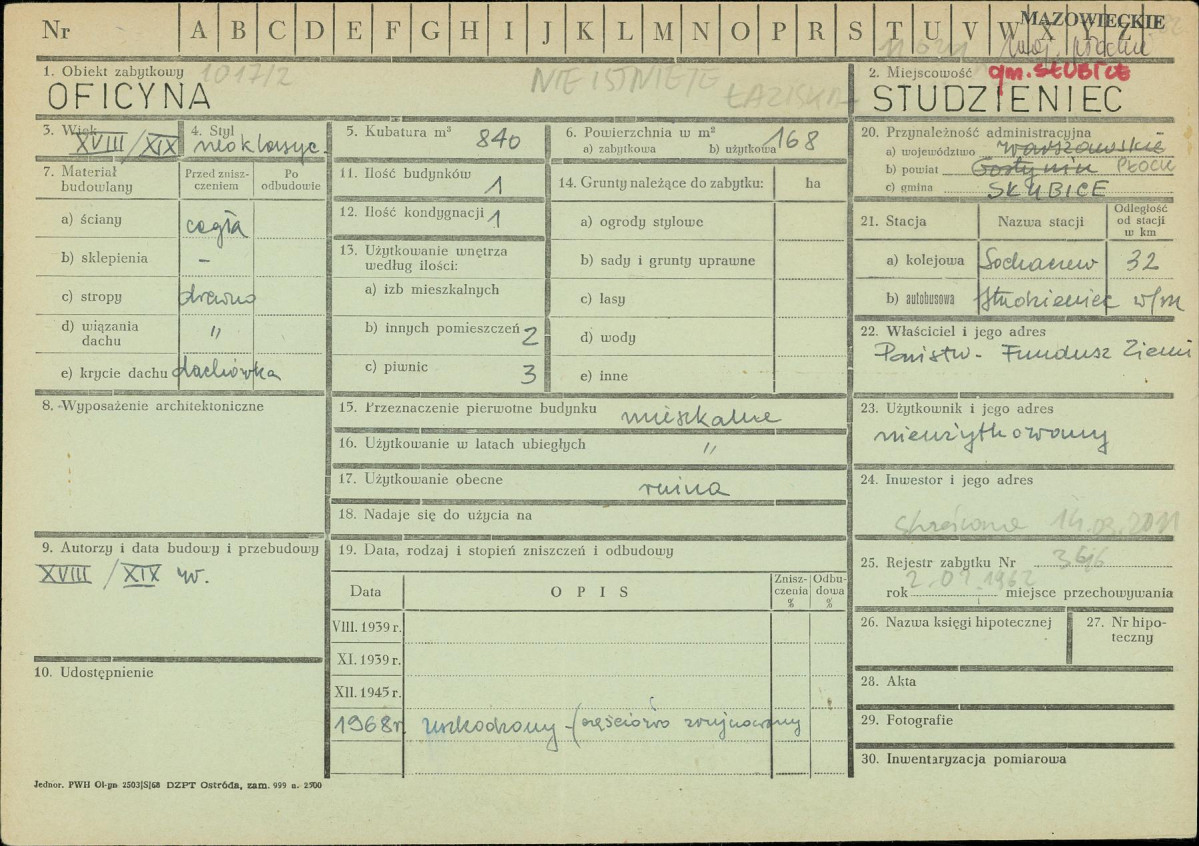 Nr A B C D E F G H I J K L M N O P R S T U V W X Y Z
MAZOWIECKIE
woj. płockie
1. Obiekt zabytkowy 1017/2
OFICYNA
NIE ISTNIEJE
ŁAZISKA
2. Miejscowość gm. SŁUBICE
STUDZIENIEC
3. Wiek
XVIII/XIX
4. Styl
neoklasyc.
5. Kubatura m³ 840
6. Powierzchnia w m² 168
a) zabytkowa b) użytkowa
7. Materiał budowlany
Przed zniszczeniem
Po odbudowie
a) ściany cegła
b) sklepienia –
c) stropy drewno
d) wiązania dachu "
e) krycie dachu dachówka
8. Wyposażenie architektoniczne
9. Autorzy i data budowy i przebudowy
XVIII/XIX w.
10. Udostępnienie
11. Ilość budynków 1
12. Ilość kondygnacji 1
13. Użytkowanie wnętrza
według ilości:
a) izb mieszkalnych
b) innych pomieszczeń 2
c) piwnic 3
14. Grunty należące do zabytku: ha
a) ogrody stylowe
b) sady i grunty uprawne
c) lasy
d) wody
e) inne
15. Przeznaczenie pierwotne budynku mieszkalne
16. Użytkowanie w latach ubiegłych "
17. Użytkowanie obecne ruina
18. Nadaje się do użycia na
19. Data, rodzaj i stopień zniszczeń i odbudowy
Data OPIS Zniszczenia % Odbudowa %
VIII. 1939 r.
XI. 1939 r.
XII. 1945 r.
1968r uszkodzony – (częściowo zrujnowany
20. Przynależność administracyjna
a) województwo warszawskie
b) powiat Gostynin PŁOCK
c) gmina SŁUBICE
21. Stacja Nazwa stacji Odległość od stacji w km
a) kolejowa Sochaczew 32
b) autobusowa Studzieniec w/m
22. Właściciel i jego adres
Państw. Fundusz Ziemi
23. Użytkownik i jego adres
nieużytkowany
24. Inwestor i jego adres
25. Rejestr zabytku Nr
rok miejsce przechowywania
26. Nazwa księgi hipotecznej
27. Nr hipoteczny
28. Akta
29. Fotografie
30. Inwentaryzacja pomiarowa
Jednor. PWH Ol-gn 2503/S/68 DZPT Ostróda, zam. 999 n. 2500